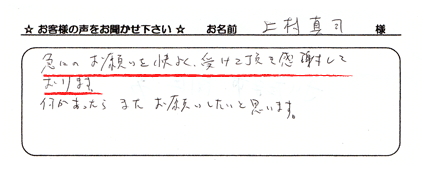 ☆ お客様の声をお聞かせ下さい ☆ お名前 上村真司 様
急にの お願いを快よく、受けて頂き感謝して
おります。
何かあったら また お願いしたいと思います。